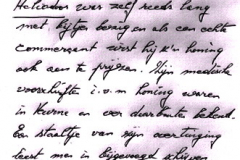 Heliodoor was zelf reeds lang
met bijtjes bezig en als een echte
commerçant wist hij z'n honing
ook aan te prijzen. Zijn medische
voorschriften i.v.m honing waren
in Keerne en ver daarbuiten bekend.
Een staaltje van zijn overtuiging
leest men in bijgevoegd schrijven